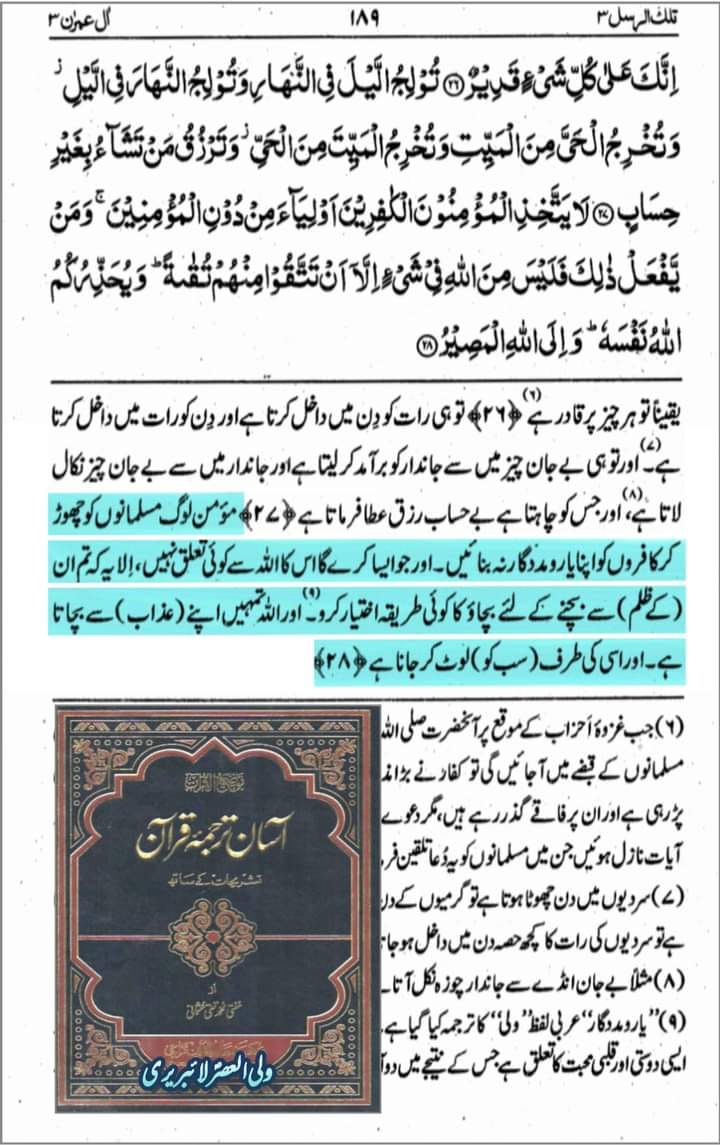 تلك الرسل ٣
١٨٩
اٰل عمرٰن ٣
اِنَّكَ عَلٰى كُلِّ شَىْءٍ قَدِيْرٌ ﴿٢٦﴾ تُوْلِجُ الَّيْلَ فِى النَّهَارِ وَتُوْلِجُ النَّهَارَ فِى الَّيْلِ ز
وَتُخْرِجُ الْحَىَّ مِنَ الْمَيِّتِ وَتُخْرِجُ الْمَيِّتَ مِنَ الْحَىِّ ز وَتَرْزُقُ مَنْ تَشَآءُ بِغَيْرِ
حِسَابٍ ﴿٢٧﴾ لَا يَتَّخِذِ الْمُؤْمِنُوْنَ الْكٰفِرِيْنَ اَوْلِيَآءَ مِنْ دُوْنِ الْمُؤْمِنِيْنَ ۚ وَمَنْ
يَّفْعَلْ ذٰلِكَ فَلَيْسَ مِنَ اللّٰهِ فِىْ شَىْءٍ اِلَّاۤ اَنْ تَتَّقُوْا مِنْهُمْ تُقٰىةً ؕ وَيُحَذِّرُكُمُ
اللّٰهُ نَفْسَهٗ ؕ وَاِلَى اللّٰهِ الْمَصِيْرُ ﴿٢٨﴾
یقیناً تو ہر چیز پر قادر ہے (۶) ﴿۲۶﴾ تو ہی رات کو دِن میں داخل کرتا ہے اور دِن کو رات میں داخل کرتا
ہے۔ (۷) اور تو ہی بے جان چیز میں سے جاندار کو برآمد کرلیتا ہے اور جاندار میں سے بے جان چیز نکال
لاتا ہے، (۸) اور جس کو چاہتا ہے بے حساب رزق عطا فرماتا ہے ﴿۲۷﴾ مؤمن لوگ مسلمانوں کو چھوڑ
کر کافروں کو اپنا یار و مددگار نہ بنائیں۔ اور جو ایسا کرے گا اس کا اللہ سے کوئی تعلق نہیں، اِلا یہ کہ تم ان
(کے ظلم) سے بچنے کے لئے بچاؤ کا کوئی طریقہ اختیار کرو۔ (۹) اور اللہ تمہیں اپنے (عذاب) سے بچاتا
ہے۔ اور اسی کی طرف (سب کو) لوٹ کر جانا ہے ﴿۲۸﴾
(۶) جب غزوۂ اَحزاب کے موقع پر آنحضرت صلی اللہ
مسلمانوں کے قبضے میں آجائیں گی تو کفار نے بڑا مذ
پڑ رہی ہے اور ان پر فاقے گذر رہے ہیں، مگر دعوے
آیات نازل ہوئیں جن میں مسلمانوں کو یہ دُعا تلقین فر
(۷) سردیوں میں دن چھوٹا ہوتا ہے تو گرمیوں کے دن
ہے تو سردیوں کی رات کا کچھ حصہ دن میں داخل ہوجا
(۸) مثلاً بے جان انڈے سے جاندار چوزہ نکل آتا۔
(۹) ”یار و مددگار“ عربی لفظ ”ولی“ کا ترجمہ کیا گیا ہے
ایسی دوستی اور قلبی محبت کا تعلق ہے جس کے نتیجے میں دو آ
آسان ترجمۂ قرآن
تشریحات کے ساتھ
از
مفتی محمد تقی عثمانی
ولی العصر لائبریری